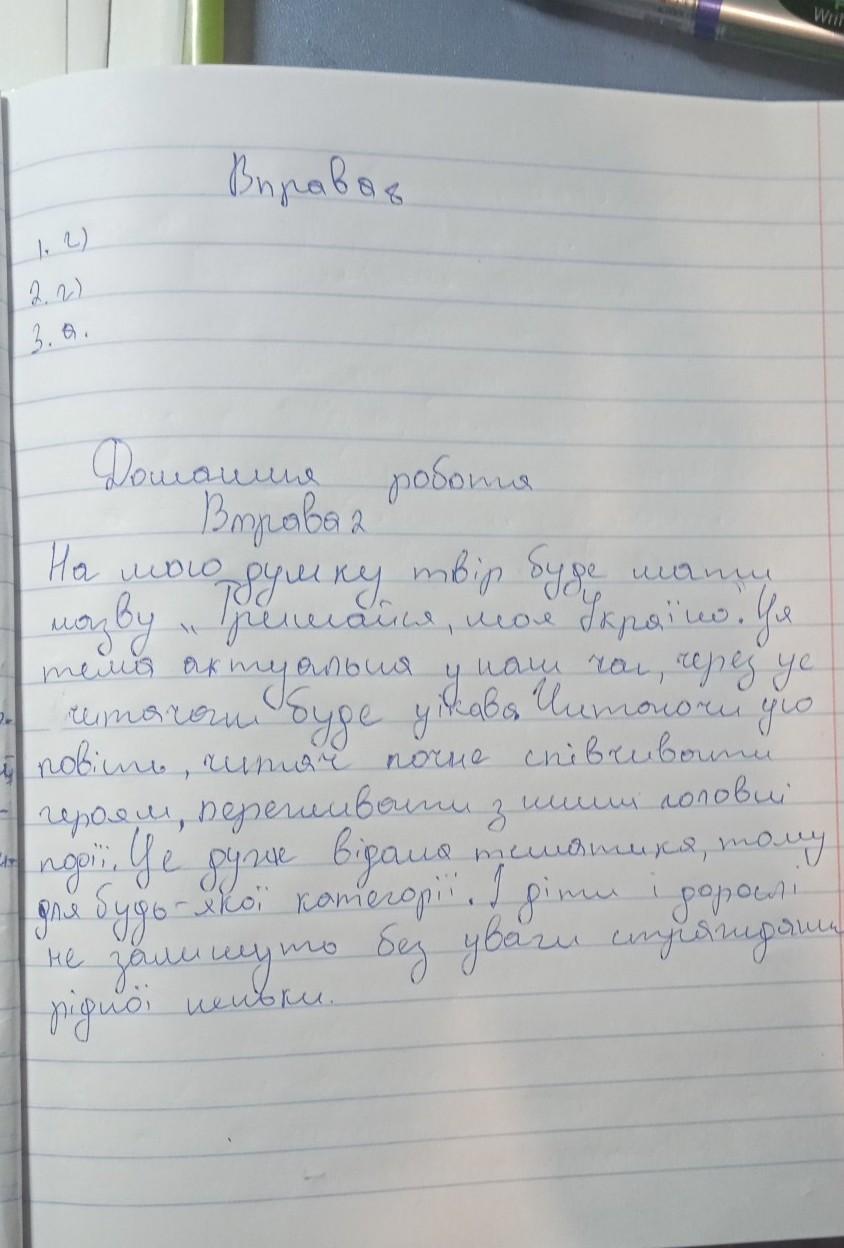 Вправа 8
1. г)
2. г)
3. а.
Домашня робота
Вправа 2
На мою думку твір буде мати
назву „Тримайся, моя Україно". Ця
тема актуальна у наш час, через це
читачам буде цікава. Читаючи цю
повість, читач почне співчивати
героям, переживати з ними головні
події. Це дуже відама тематика, тому
для будь-якої категорії. І діти і дорослі
не залишуть без уваги
рідної неньки.